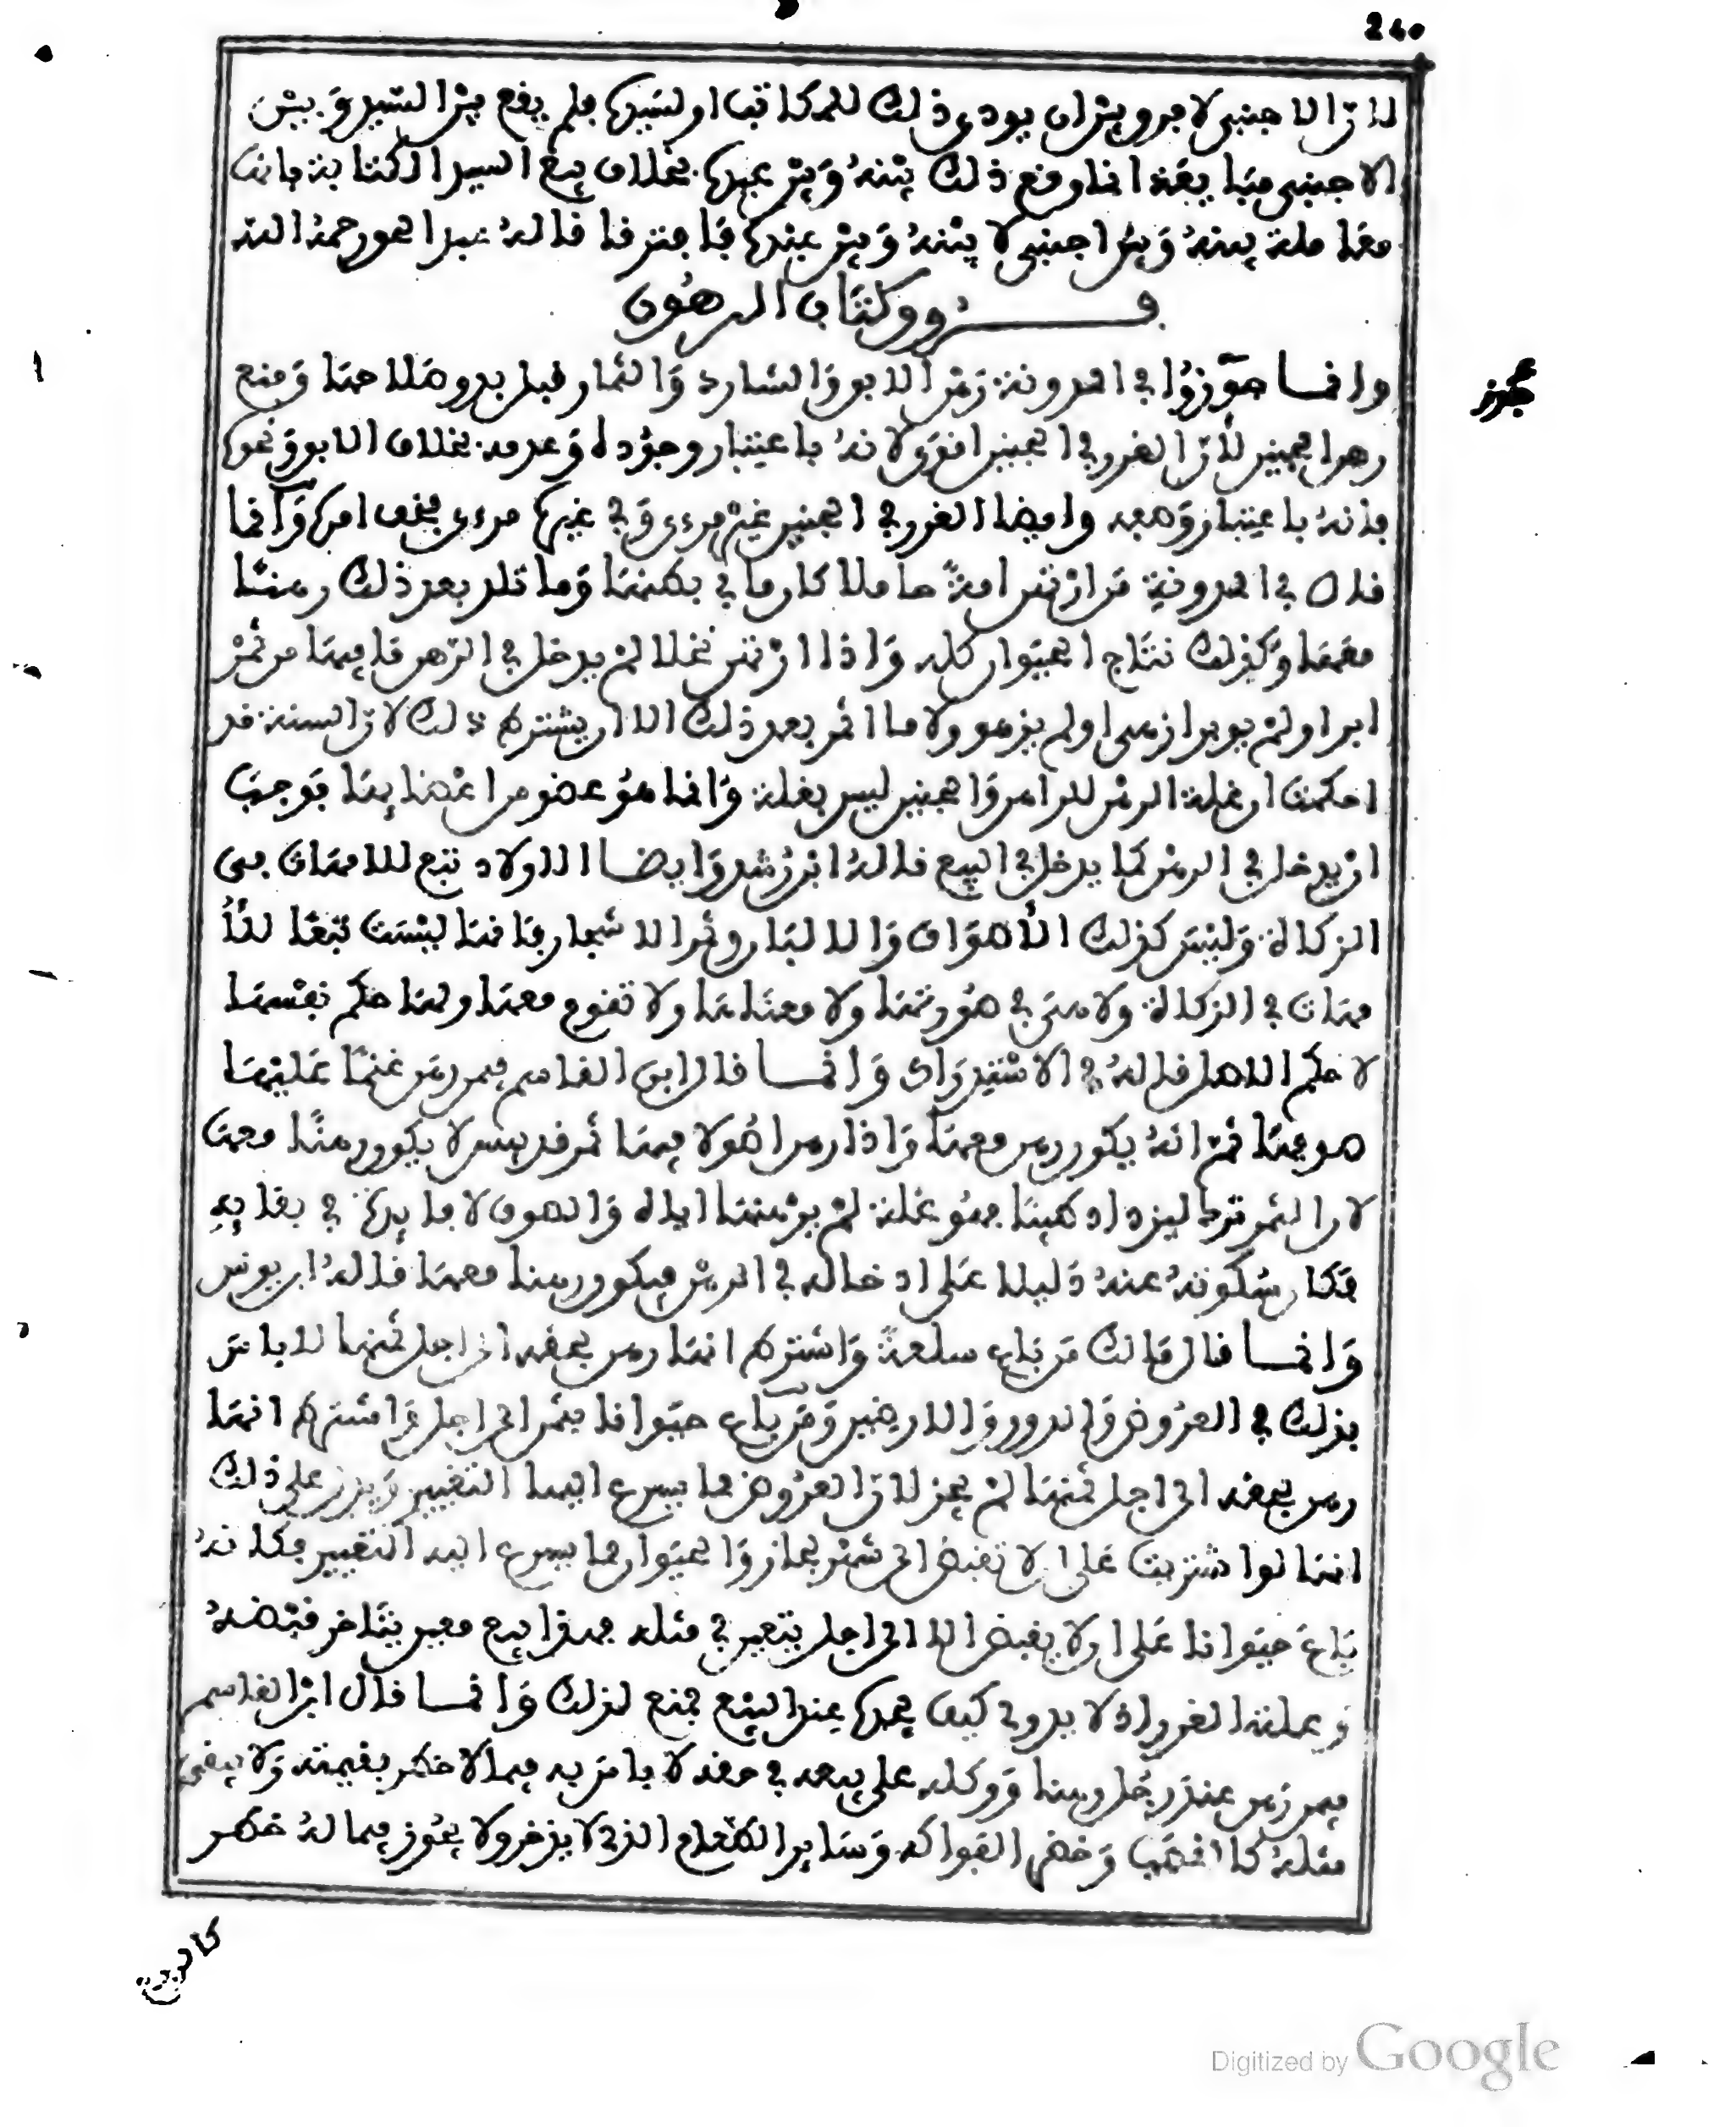 240
لان الاجنبي لا فرق بين ان يودي ذلك للمكاتب او لسيدها فلم يقع بين السيد وبين
الاجنبي مبايعة انما وقع ذلك بينه وبين عبدها بخلاف بيع السيد الكتابة فانها
معاملة بينه وبين اجنبي لا بينه وبين عبدها فافترقا قاله عبد الحق رحمه الله
فروق كتاب الرهون
وانما جوزوا في المدونة رهن الابق والشارد والثمار قبل بدو صلاحها ومنع
رهن الجنين لان الغرر في الجنين اقوى لانه باعتبار وجوده وعدمه بخلاف الابق ونحوها
فانه باعتبار وصفه وايضا الغرر في الجنين غير مرءي وفي غيرها مرءي فخف امرها وانما
قال في المدونة من ارتهن امة حاملا كان ما في بطنها وما تلد بعد ذلك رهنا
معها وكذلك نتاج الحيوان كله واذا ارتهن نخلا لم يدخل في الرهن ما فيها من ثمر
ابر او لم يوبر ازهى او لم يزهو ولا ما اثمر بعد ذلك الا ان يشترط ذلك لان السنة قد
احكمت ان غلة الرهن للراهن والجنين ليس بغلة وانما هو عضو من اعضايها فوجب
ان يدخل في الرهن كما يدخل في البيع قاله ابن رشد وايضا الاولاد تبع للامهات في
الزكاة وليس كذلك الاصواف والالبان وثمر الاشجار فانها ليست تبعا للا
مهات في الزكاة ولا هي في صورتها ولا معناها ولا تقوم معها ولها حكم نفسها
لا حكم الاصل قاله في الاستذراك وانما قال ابن القاسم فيمن رهن غنما عليها
صوفها ثم انه يكون رهن معها واذا رهن اصولا فيها ثمر قد يبس لا يكون رهنا معها
لان الثمر ترك ليزداد طيبا فهو غلة لم يرهنها اياه والصوف لا فايدة في بقايه
فكان سكوته عنه دليلا على ادخاله في الرهن فيكون رهنا معها قاله ابن يونس
وانما قال مالك من باع سلعة واشترط انها رهن بحقه الى اجل ثمنها لا باس
بذلك في العروض والدور والارضين ومن باع حيوانا بثمن الى اجل واشترط انها
رهن بحقه الى اجل ثمنها لم يجز لان العروض مما يسرع اليها التغيير ويدل على ذلك
انها لو اشتريت على ان لا تقبض الى شهر لجاز والحيوان مما يسرع اليه التغيير فكانه
باع حيوانا على ان لا يقبض الا الى اجل يتغير في مثله فهذا بيع معين يتاخر قبضه
وعلته الغرر اذ لا يدرى كيف يجدها عند البيع فمنع لذلك وانما قال ابن القاسم
فيمن رهن عند رجل رهنا ووكله على بيعه في حقه لا باس به فيما لا خطر بقيمته ولا يبقى
مثله كالقصب وخضر الفواكه وساير الطعام الذي لا يدخر ولا يجوز فيما له خطر